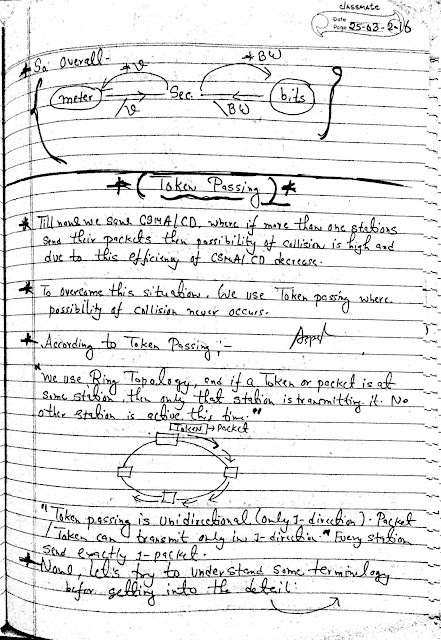 classmate
Date
Page 25-03-2016
* So Overall -
*v
*BW
meter
Sec.
bits
/v
\BW
* (Token Passing) *
* Till now we saw CSMA/CD, where if more than one stations
send their packets then possibility of collision is high and
due to this efficiency of CSMA/CD decrease.
* To overcome this situation, We use Token passing where
possibility of collision never occurs.
* According to Token Passing ;-
"We use Ring Topology, and if a Token or packet is at
some station then only that station is transmitting it. No
other station is active this time."
Token → Packet
"Token passing is Unidirectional (only 1-direction). Packet
/Token can transmit only in 1-direction" Every station
Send exactly 1-packet.
* Now, let's try to understand some terminology
befor getting into the detail: